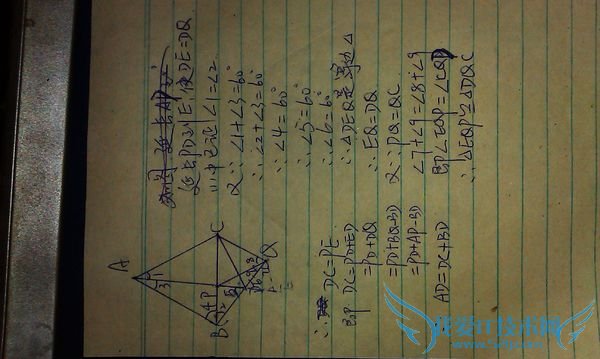 延长PD到E,使DE=DQ
(1)中已证∠1=∠2
又∵∠1+∠3=60°
∴∠2+∠3=60°
∴∠4=60°
∴∠5=60°
∴∠6=60°
∴△DEQ是等边△
∴EQ=DQ
又∵PQ=QC
∠7+∠9=∠8+∠9
即∠EQP=∠CQD
∴△EQP≌△DQC
∴DC=PE
即DC=PD+ED
=PD+DQ
=PD+BQ-BD
=PD+AP-BD
AD=DC+BD
A
B
C
P
Q